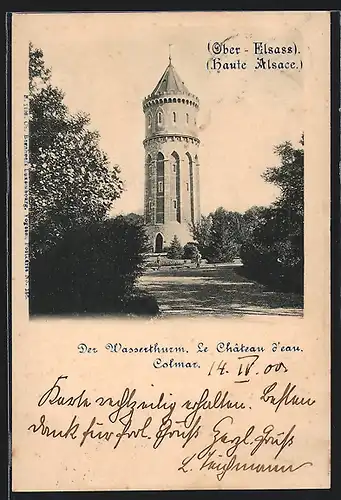 (Ober - Elsass).
(Haute Alsace.)
Der Wasserthurm. Le Château d'eau.
Colmar. 14. IV. 00.
Karte rechtzeitig erhalten. Besten
dank für frdl. Gruss Herzl. Gruss
L. Teichmann